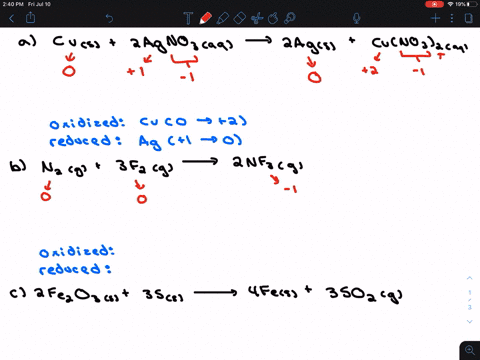 2:40 PM Fri Jul 10
19%
a) Cu(s) + 2AgNO3(aq) → 2Ag(s) + Cu(NO3)2(aq)
0 +1 -1 0 +2 -1
oxidized: Cu (0 → +2)
reduced: Ag (+1 → 0)
b) N2(g) + 3F2(g) → 2NF3(g)
0 0 -1
oxidized:
reduced:
c) 2Fe2O3(s) + 3S(s) → 4Fe(s) + 3SO2(g)